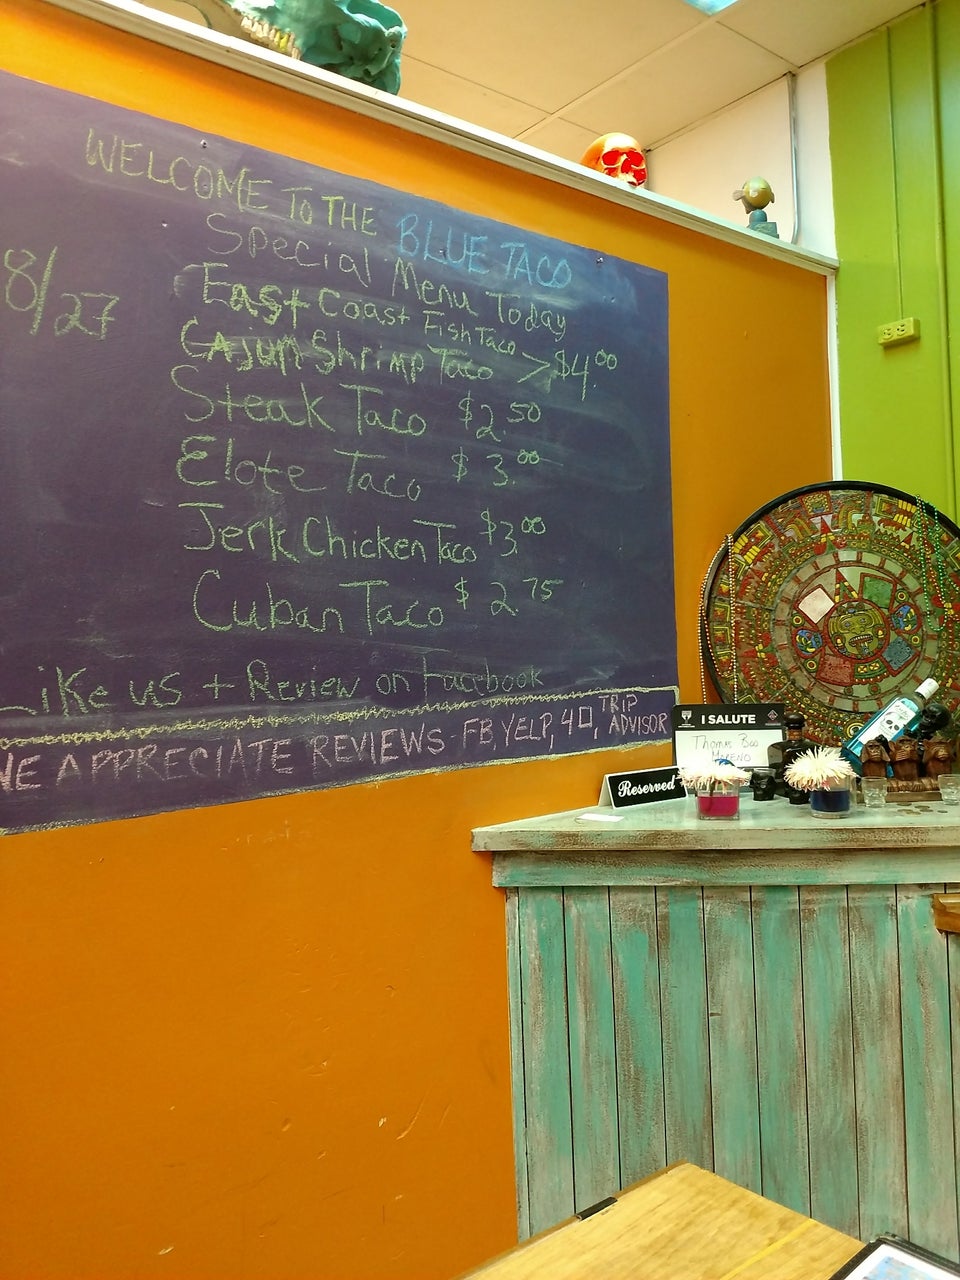 WELCOME TO THE BLUE TACO
8/27
Special Menu Today
East Coast Fish Taco
Cajun Shrimp Taco > $4.00
Steak Taco $2.50
Elote Taco $3.00
Jerk Chicken Taco $3.00
Cuban Taco $2.75
Like us + Review on facebook
WE APPRECIATE REVIEWS - FB, YELP, 4□, TRIP ADVISOR
I SALUTE
Thomas Boo
Moreno
Reserved